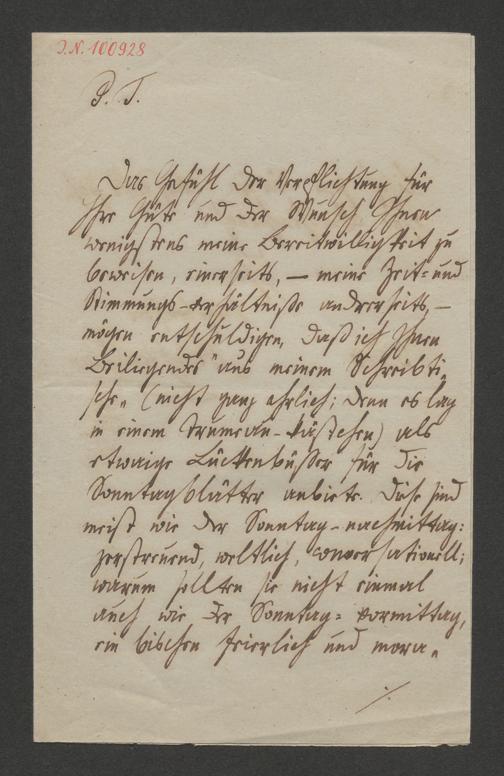 I.N. 100928
P. T.
Das Gefühl der Verpflichtung für
Ihre Güte und der Wunsch Ihnen
wenigstens meine Bereitwilligkeit zu
beweisen, einerseits, — meine Zeit- und
Stimmungs-verhältniße andrerseits, —
mögen entschuldigen, daß ich Ihnen
Beiliegendes "aus meinem Schreibti-
sche" (nicht ganz ehrlich; denn es lag
in einem Trumeau-kästchen) als
etwaige Lückenbüßer für die
Sonntagsblätter anbiete. Diese sind
meist wie der Sonntag-nachmittag:
zerstreuend, weltlich, conversationell;
warum sollten sie nicht einmal
auch wie der Sonntag-vormittag,
ein bischen feierlich und mora-
./.